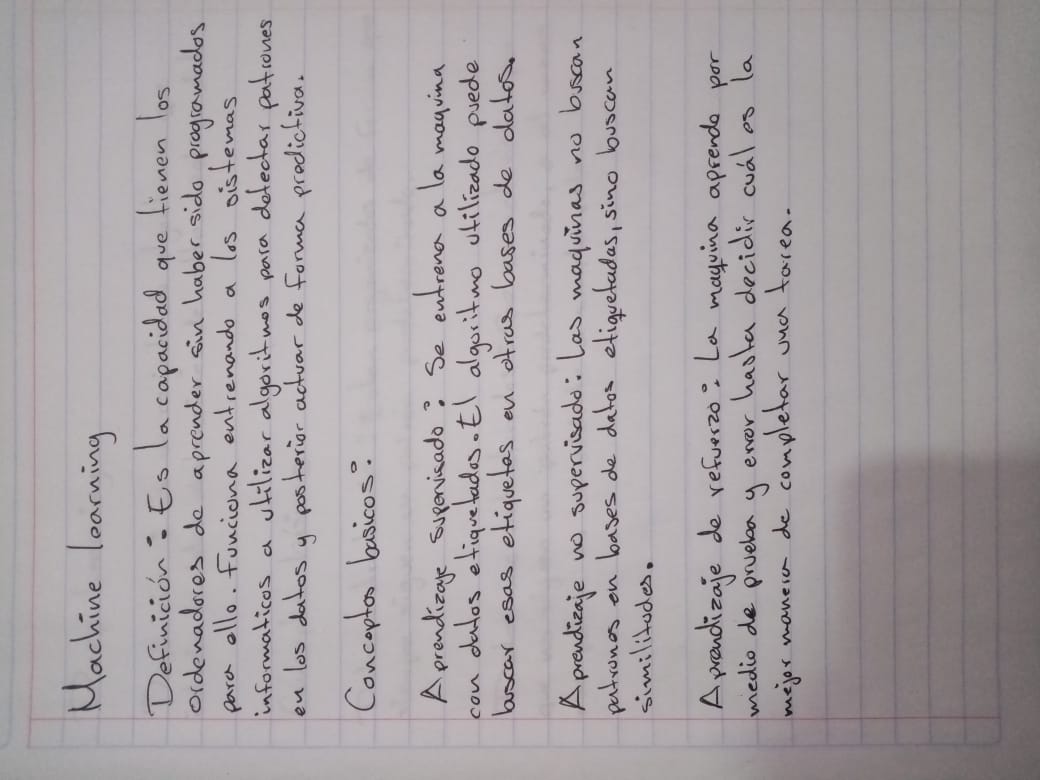 Machine learning
Definición: Es la capacidad que tienen los
ordenadores de aprender sin haber sido programados
para ello. Funciona entrenando a los sistemas
informaticos a utilizar algoritmos para detectar patrones
en los datos y posterior actuar de forma predictiva.
Conceptos basicos:
Aprendizaje supervisado: Se entrena a la maquina
con datos etiquetados. El algoritmo utilizado puede
buscar esas etiquetas en otras bases de datos.
Aprendizaje no supervisado: Las maquinas no buscan
patrones en bases de datos etiquetadas, sino buscan
similitudes.
Aprendizaje de refuerzo: La maquina aprende por
medio de prueba y error hasta decidir cuál es la
mejor manera de completar una tarea.